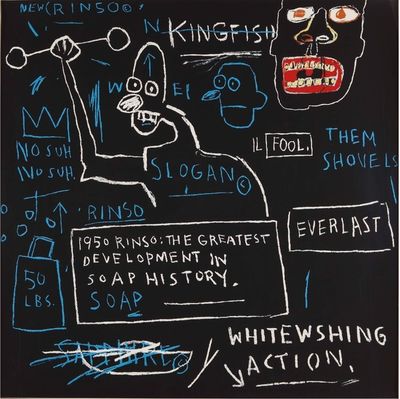 NEW(RINSO©:
N KINGFISH
W EI
IL FOOL.
THEM
SHOVELS
NO SUH
NO SUH.
SLOGAN©
RINSO
EVERLAST
1950 RINSO: THE GREATEST
DEVELOPMENT IN
SOAP HISTORY.
SOAP
50
LBS.
WHITEWSHING
ACTION.